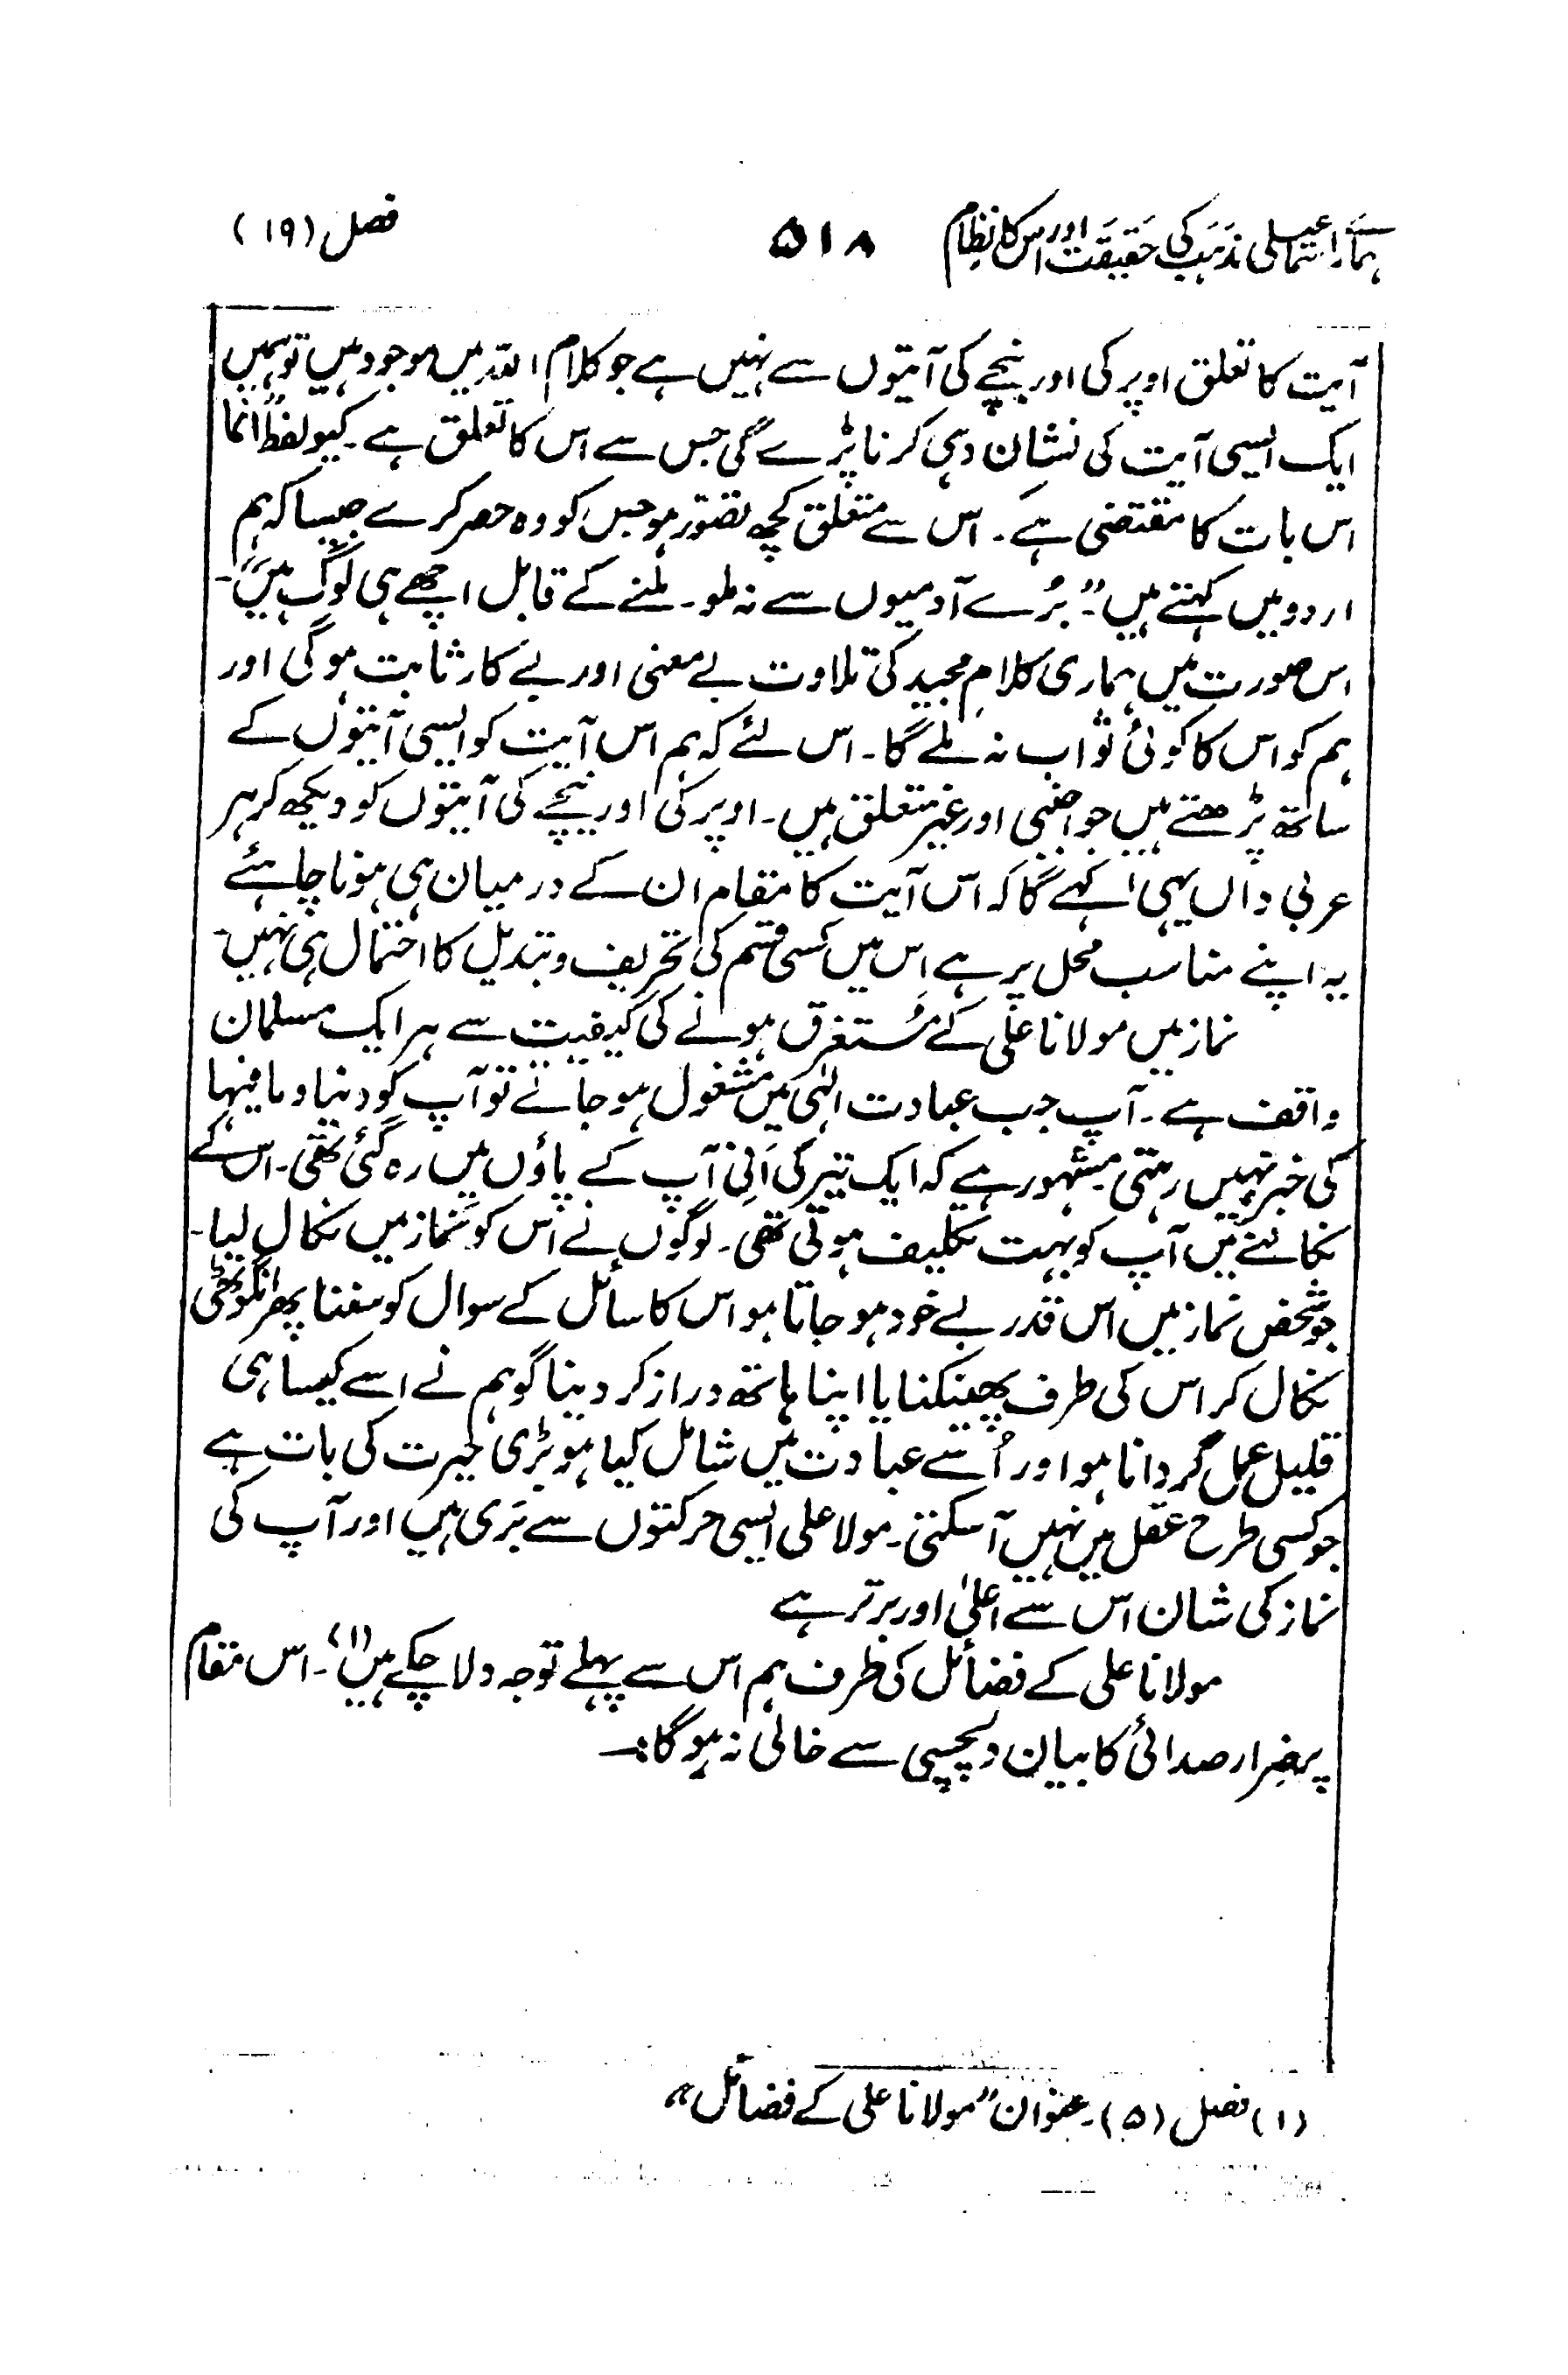 ہمارا اسماعیلی مذہب کی حقیقت اور اس کا نظام ۵۱۸ فصل (۱۹)
آیت کا تعلق اوپر کی اور نیچے کی آیتوں سے نہیں ہے جو کلام اللہ میں موجود ہیں تو ہمیں
ایک ایسی آیت کی نشان دہی کرنا پڑے گی جس سے اس کا تعلق ہے۔ کیو لفظ "انما
اس بات کا مقتضی ہے۔ اس سے متعلق کچھ تصوّر ہو جس کو وہ حصر کرے جیسا کہ ہم
اردو میں کہتے ہیں "بُرے آدمیوں سے نہ ملو۔ ملنے کے قابل اچھے ہی لوگ ہیں"۔
اس صورت میں ہماری کلامِ مجید کی تلاوت بے معنی اور بے کار ثابت ہوگی اور
ہم کو اس کا کوئی ثواب نہ ملے گا۔ اس لئے کہ ہم اس آیت کو ایسی آیتوں کے
ساتھ پڑھتے ہیں جو اجنبی اور غیر متعلق ہیں۔ اوپر کی اور نیچے کی آیتوں کو دیکھ کر ہر
عربی داں یہی کہے گا کہ اس آیت کا مقام ان کے درمیان ہی ہونا چاہئے
یہ اپنے مناسب محل پر ہے اس میں کسی قسم کی تحریف و تبدیل کا احتمال ہی نہیں۔
نماز میں مولانا علی کے مُستغرق ہونے کی کیفیت سے ہر ایک مسلمان
واقف ہے۔ آپ جب عبادت الٰہی میں مشغول ہو جاتے تو آپ کو دنیا و ما فیہا
کی خبر نہیں رہتی مشہور ہے کہ ایک تیر کی اَنی آپ کے پاؤں میں رہ گئی تھی۔ اس کے
نکالنے میں آپ کو بہت تکلیف ہوتی تھی۔ لوگوں نے اس کو نماز میں نکال لیا۔
جو شخص نماز میں اس قدر بے خود ہو جاتا ہو اس کا سائل کے سوال کو سننا پھر انگوٹھی
نکال کر اس کی طرف پھینکنا یا اپنا ہاتھ دراز کر دینا گو ہم نے اسے کیسا ہی
قلیل عمل گردانا ہو اور اُسے عبادت میں شامل کیا ہو بڑی حیرت کی بات ہے
جو کسی طرح عقل میں نہیں آسکتی۔ مولا علی ایسی حرکتوں سے بَری ہیں اور آپ کی
نماز کی شان اس سے اعلیٰ اور برتر ہے
مولانا علی کے فضائل کی طرف ہم اس سے پہلے توجہ دلا چکے ہیں (۱)۔ اس مقام
پر ضِرار صدائی کا بیان دلچسپی سے خالی نہ ہوگا:۔
(۱) فصل (۵)۔ عنوان "مولانا علی کے فضائل"